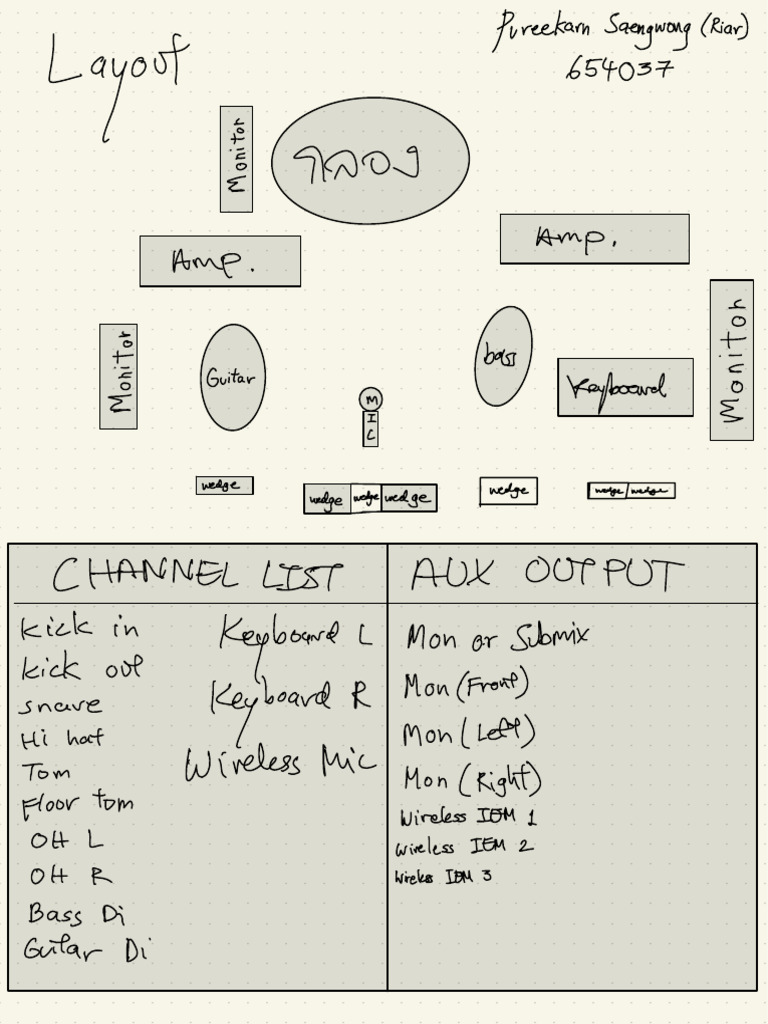 Layout
Pureekarn Saengwong (Riar)
654037
Monitor
กลอง
Amp.
Amp.
Monitor
Guitar
MIC
bass
Keyboard
Monitor
wedge
wedge wedge wedge
wedge
wedge wedge
CHANNEL LIST
Kick in
Kick out
snare
Hi hat
Tom
Floor tom
OH L
OH R
Bass Di
Guitar Di
Keyboard L
Keyboard R
Wireless Mic
AUX OUTPUT
Mon or Submix
Mon (Front)
Mon (Left)
Mon (Right)
Wireless IEM 1
Wireless IEM 2
Wireless IEM 3